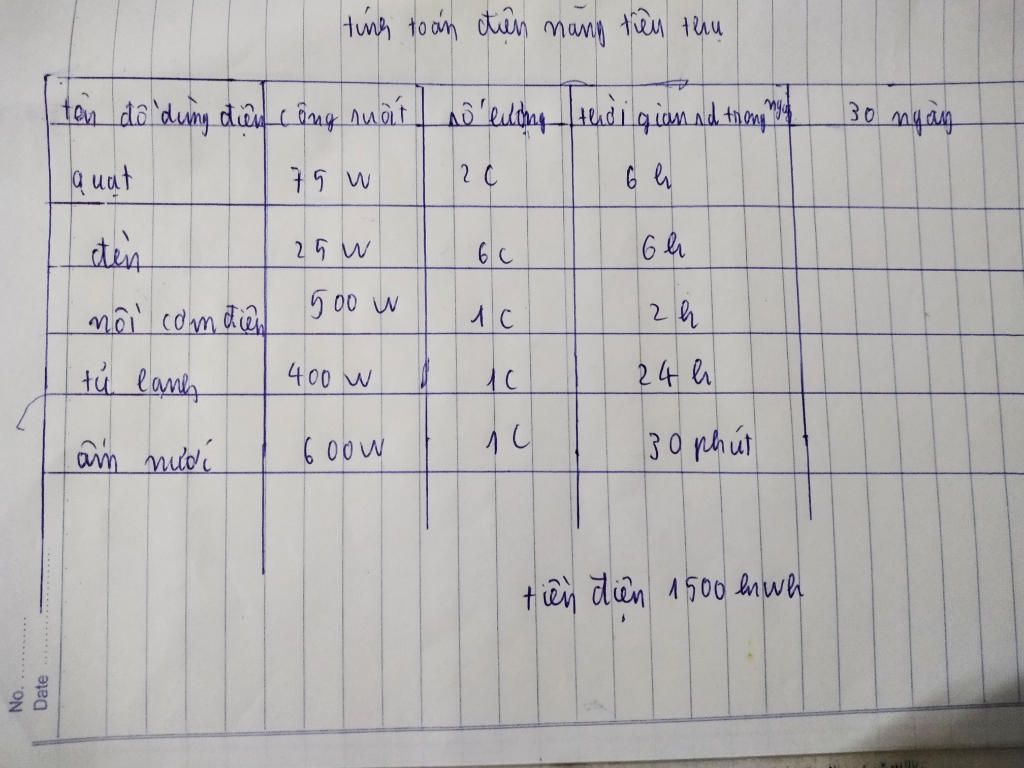 tính toán điện năng tiêu thụ
tên đồ dùng điện công suất số lượng thời gian sd trong ngày 30 ngày
quạt 75 W 2 C 6 h
đèn 25 W 6 C 6 h
nồi cơm điện 500 W 1 C 2 h
tủ lạnh 400 W 1 C 24 h
ấm nước 600 W 1 C 30 phút
tiền điện 1500 kwh
No. ............
Date ............